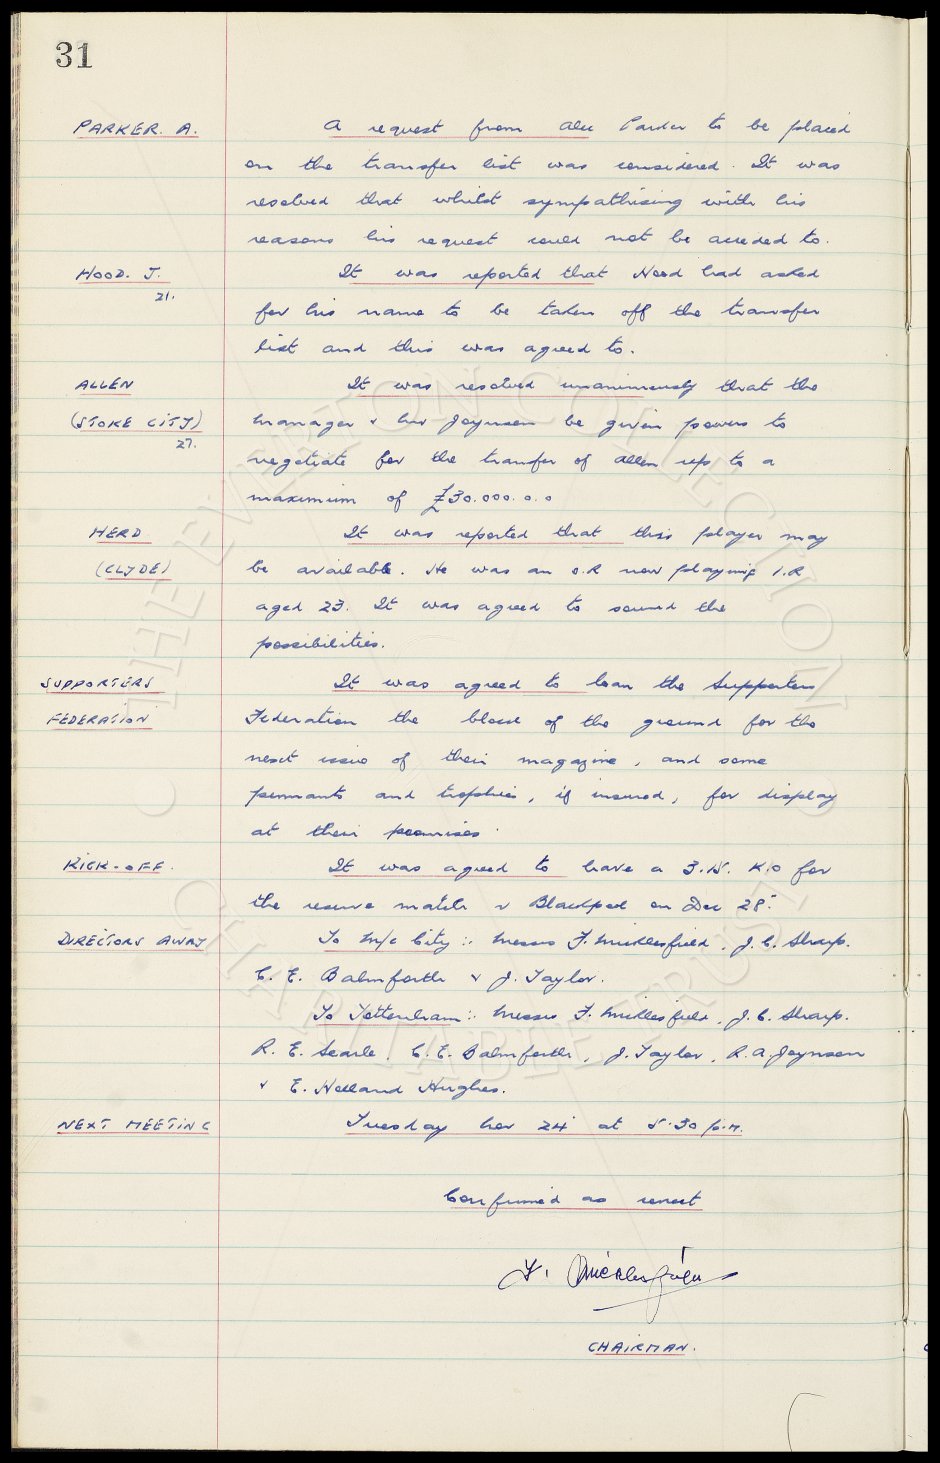 31
PARKER. A.
A request from Alec Parker to be placed
on the transfer list was considered. It was
resolved that whilst sympathising with his
reasons his request could not be acceded to.
HOOD. J.
21.
It was reported that Hood had asked
for his name to be taken off the transfer
list and this was agreed to.
ALLEN
(STOKE CITY)
27.
It was resolved unanimously that the
manager & Mr Joynson be given powers to
negotiate for the transfer of Allen up to a
maximum of £30.000.0.0
HERD
(CLYDE)
It was reported that this player may
be available. He was an O.R now playing I.R
aged 23. It was agreed to sound the
possibilities.
SUPPORTERS
FEDERATION
It was agreed to loan the Supporters
Federation the block of the ground for the
next issue of their magazine, and some
pennants and trophies, if insured, for display
at their premises.
KICK-OFF.
It was agreed to have a 3.15. K.O for
the reserve match v Blackpool on Dec 28th
DIRECTORS AWAY
To M/c City :: Messrs F. Micklesfield, J.C. Sharp.
C. E. Balmforth & J. Taylor.
To Tottenham :: Messrs F. Micklesfield, J.C. Sharp.
R. E. Searle, C.E. Balmforth, J. Taylor, R.A. Joynson
& E. Holland Hughes.
NEXT MEETING
Tuesday Nov 24th at 5.30 p.m.
Confirmed as correct
F. Micklesfield
CHAIRMAN.
© THE EVERTON COLLECTION ©
CHARITABLE TRUST